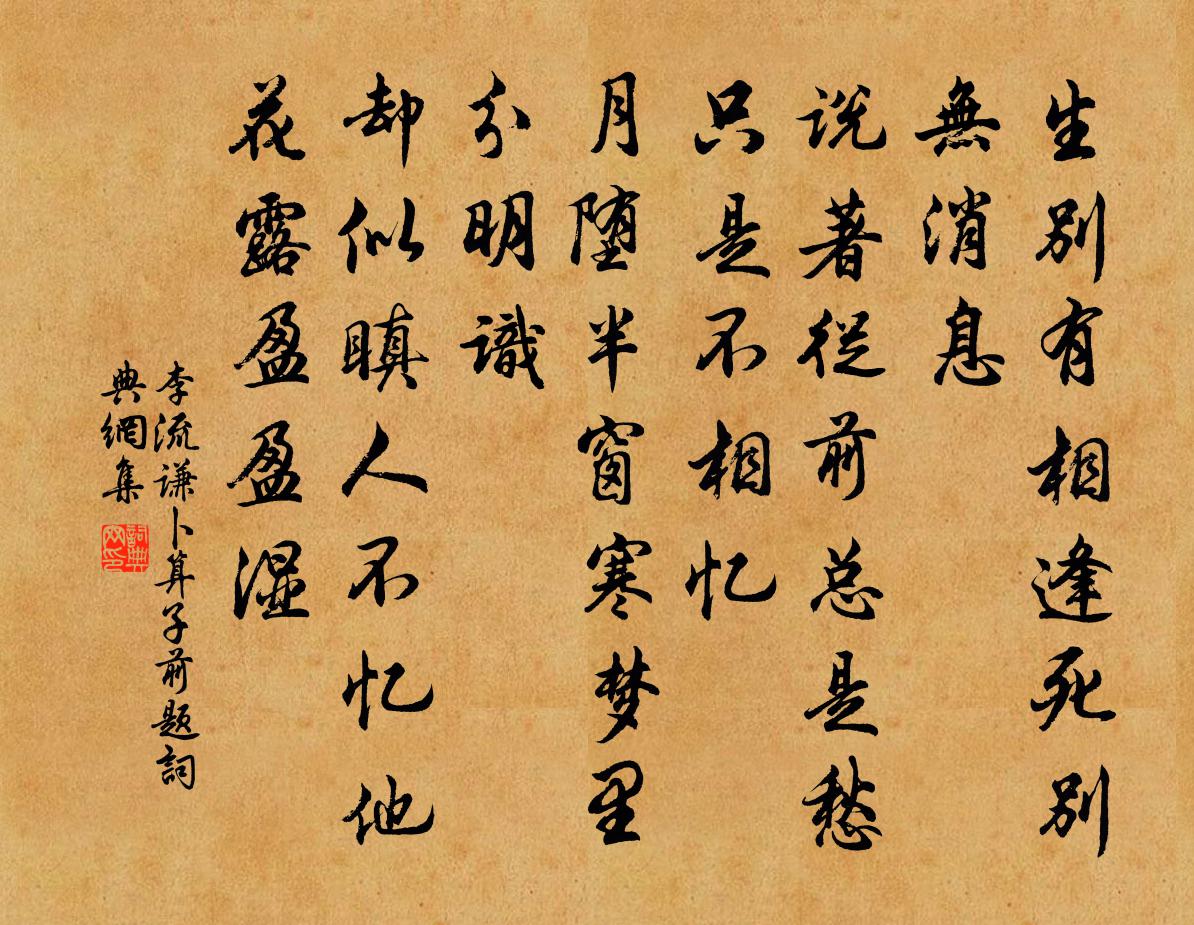 生别有相逢死别
無消息
说著從前总是愁
只是不相忆
月堕半窗寒梦里
分明識
却似瞋人不忆他
花露盈盈湿
李流谦卜算子前题詞
典網集
詞典
网印